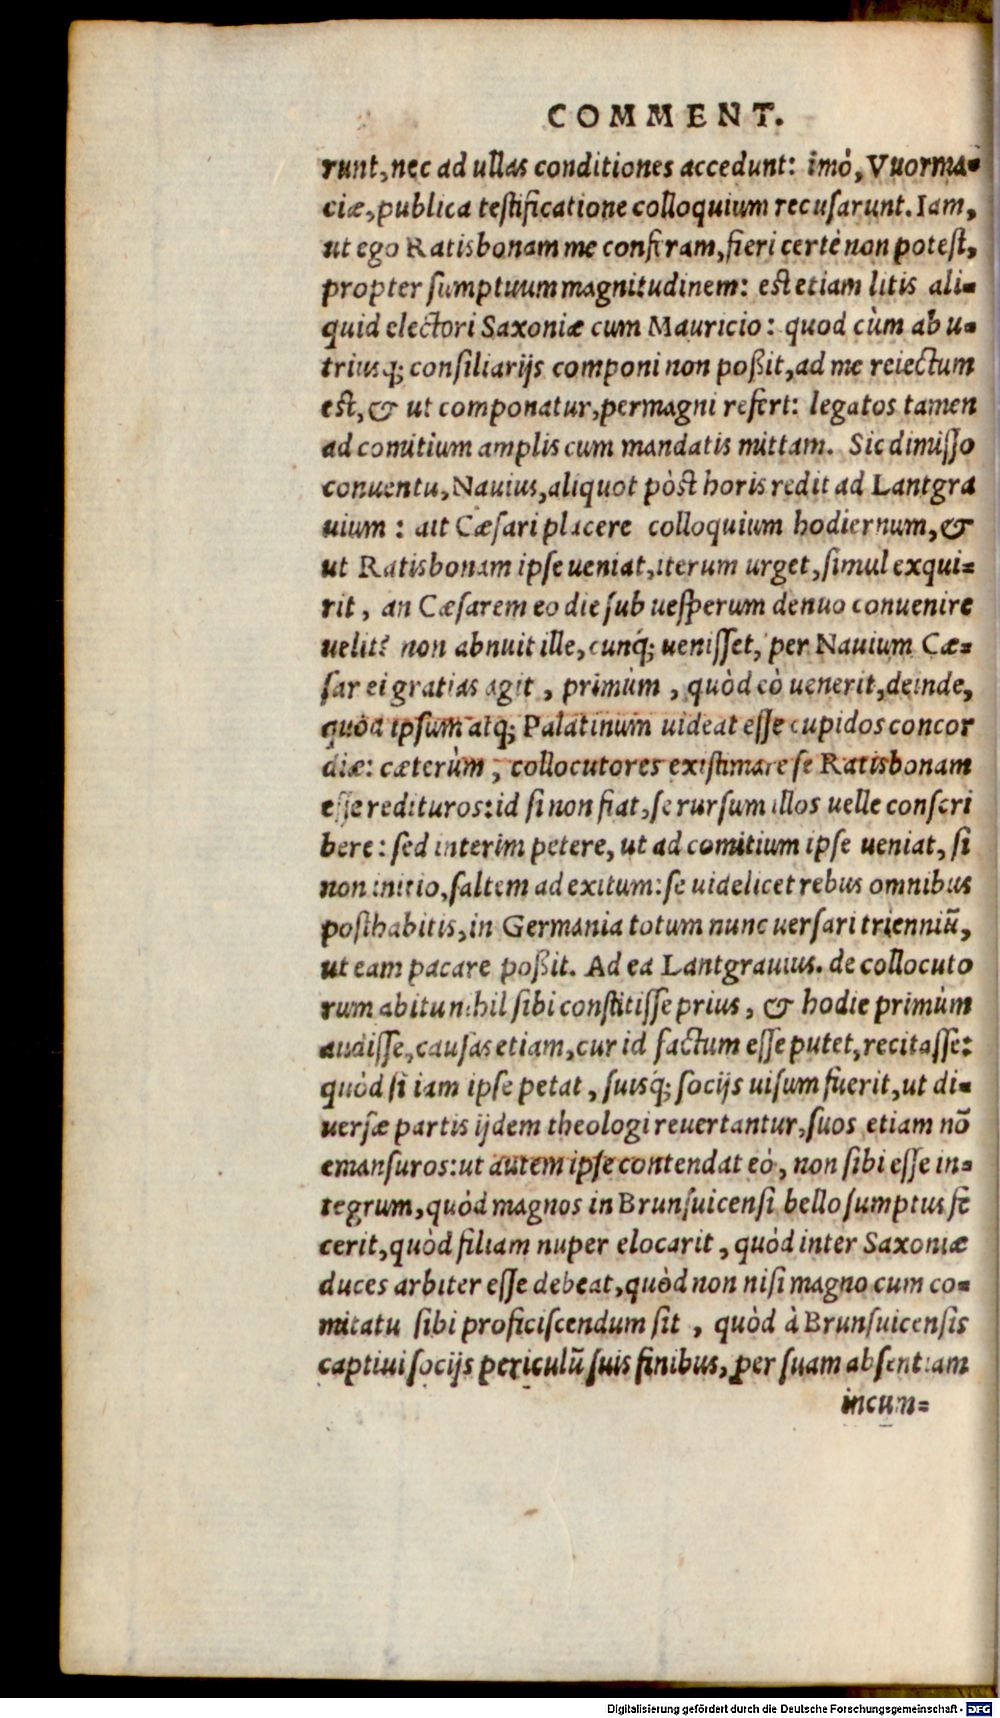 COMMENT.
runt, nec ad ullas conditiones accedunt: imò, Vuorma=
ciæ, publica testificatione colloquium recusarunt. Iam,
ut ego Ratisbonam me conferam, fieri certè non potest,
propter sumptuum magnitudinem: est etiam litis ali=
quid electori Saxoniæ cum Mauricio: quod cùm ab u=
triusq; consiliarijs componi non poßit, ad me reiectum
est, & ut componatur, permagni refert: legatos tamen
ad comitium amplis cum mandatis mittam. Sic dimisso
conuentu, Nauius, aliquot pòst horis redit ad Lantgra
uium: ait Cæsari placere colloquium hodiernum, &
ut Ratisbonam ipse ueniat, iterum urget, simul exqui=
rit, an Cæsarem eo die sub uesperum denuo conuenire
uelit? non abnuit ille, cunq́; uenisset, per Nauium Cæ=
sar ei gratias agit, primùm, quòd eò uenerit, deinde,
quòd ipsum atq; Palatinum uideat esse cupidos concor
diæ: cæterùm, collocutores existimare se Ratisbonam
esse redituros: id si non fiat, se rursum illos uelle conscri
bere: sed interim petere, ut ad comitium ipse ueniat, si
non initio, saltem ad exitum: se uidelicet rebus omnibus
posthabitis, in Germania totum nunc uersari trienniũ,
ut eam pacare poßit. Ad ea Lantgrauius. de collocuto
rum abitu nihil sibi constitisse prius, & hodie primùm
audisse, causas etiam, cur id factum esse putet, recitasse:
quòd si iam ipse petat, suisq́; socijs uisum fuerit, ut di=
uersæ partis ijdem theologi reuertantur, suos etiam nõ
emansuros: ut autem ipse contendat eò, non sibi esse in=
tegrum, quòd magnos in Brunsuicensi bello sumptus fe
cerit, quòd filiam nuper elocarit, quòd inter Saxoniæ
duces arbiter esse debeat, quòd non nisi magno cum co=
mitatu sibi proficiscendum sit, quòd à Brunsuicensis
captiui socijs periculũ suis finibus, per suam absentiam
incum=
Digitalisierung gefördert durch die Deutsche Forschungsgemeinschaft - DFG